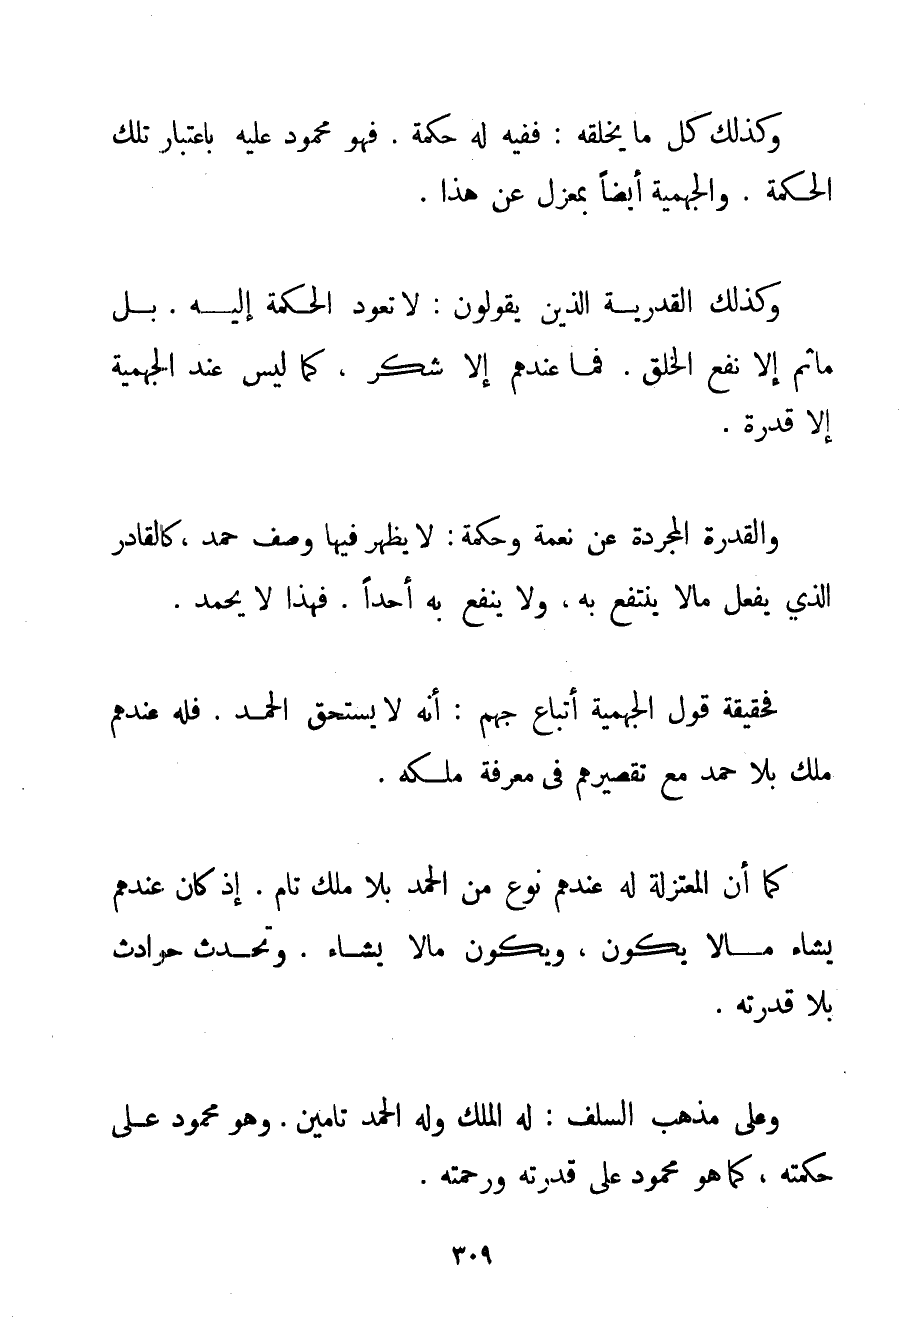 وكذلك كل ما يخلقه : ففيه له حكمة . فهو محمود عليه باعتبار تلك
الحكمة . والجهمية أيضاً بمعزل عن هذا .
وكذلك القدرية الذين يقولون : لا تعود الحكمة إليه . بل
ما ثم إلا نفع الخلق . فما عندهم إلا شكر ، كما ليس عند الجهمية
إلا قدرة .
والقدرة المجردة عن نعمة وحكمة : لا يظهر فيها وصف حمد ، كالقادر
الذي يفعل مالا ينتفع به ، ولا ينفع به أحداً . فهذا لا يحمد .
فحقيقة قول الجهمية أتباع جهم : أنه لا يستحق الحمد . فله عندهم
ملك بلا حمد مع تقصيرهم فى معرفة ملكه .
كما أن المعتزلة له عندهم نوع من الحمد بلا ملك تام . إذ كان عندهم
يشاء مالا يكون ، ويكون مالا يشاء . وتحدث حوادث
بلا قدرته .
وعلى مذهب السلف : له الملك وله الحمد تامين . وهو محمود على
حكمته ، كما هو محمود على قدرته ورحمته .
٣٠٩